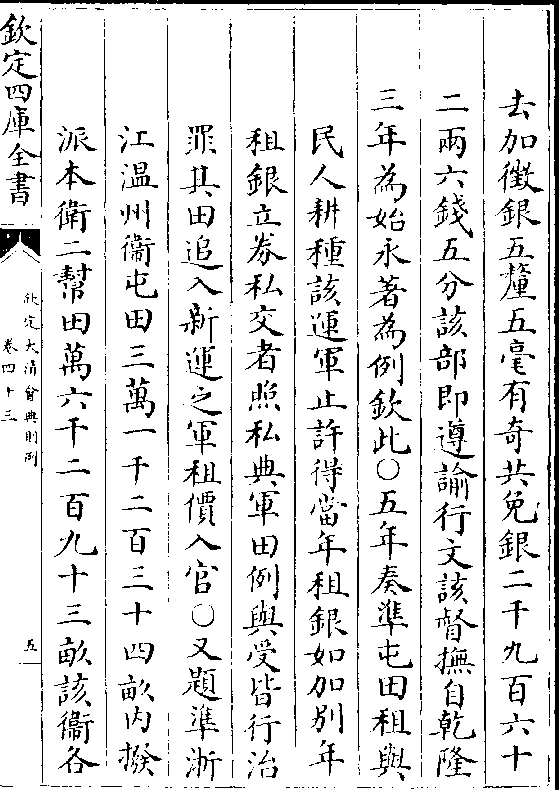 去加徴銀五釐五毫有奇共免銀二千九百六十
二兩六錢五分該部即遵諭行文該督撫自乾隆
三年為始永著為例欽此○五年奏準屯田租與
民人耕種該運軍止許得當年租銀如加别年
租銀立劵私交者照私典軍田例與受皆行治
罪其田追入新運之軍租價入官○又題準浙
江温州衞屯田三萬一千二百三十四畝内撥
派本衞二幫田萬六千二百九十三畝該衞各
欽定四庫全書
欽定大清會典則例
卷四十三
五